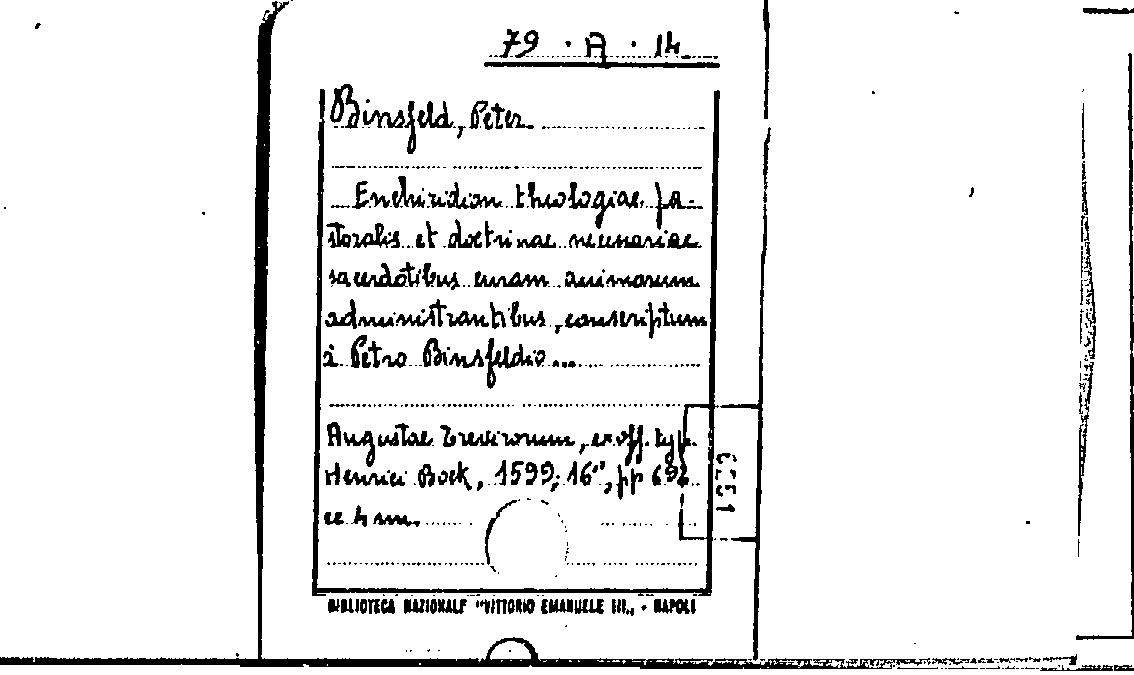 79 · A · 14
Binsfeld, Peter
Enchiridion theologiae pa-
storalis et doctrinae necessariae
sacerdotibus curam animarum
administrantibus, conscriptum
à Petro Binsfeldio...
Augustae Trevirorum, ex off. typ.
Henrici Bock, 1599; 16°, pp 698
cc 4 nn.
6251
BIBLIOTECA NAZIONALE "VITTORIO EMANUELE III„ - NAPOLI